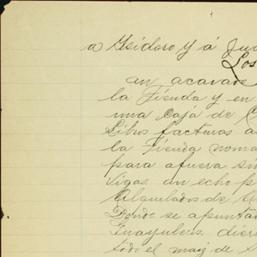 a Ysidoro y á Jua
Los
an acavado
la Tienda y en
una caja de C
Libro facturas a
la Tienda noma
para afuera sin
Vigas, an echo p
Alquilados de
Donde se apuntan
Guayules, diere
todo el maiz de s